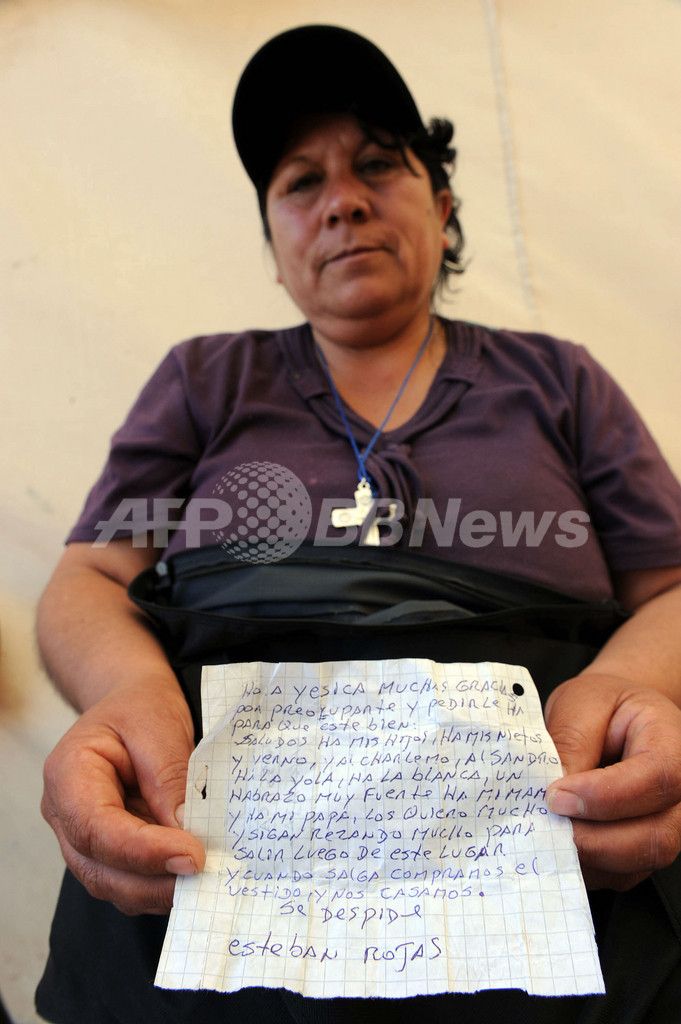 AFP BBNews
HOLA YESICA MUCHAS GRACIAS
POR PREOCUPARTE Y PEDIRLE HA
PARA QUE ESTE BIEN:
SALUDOS HA MIS HIJOS, HA MIS NIETOS
Y YERNO, Y AL CHARLEMO, AL SANDRO
HA LA YOLA, HA LA BLANCA, UN
HABRAZO MUY FUERTE HA MI MAM
Y HA MI PAPA, LOS QUIERO MUCHO
Y SIGAN REZANDO MUCHO PARA
SALIR LUEGO DE ESTE LUGAR
Y CUANDO SALGA COMPRAMOS EL
VESTIDO, Y NOS CASAMOS.
SE DESPIDE
ESTEBAN ROJAS